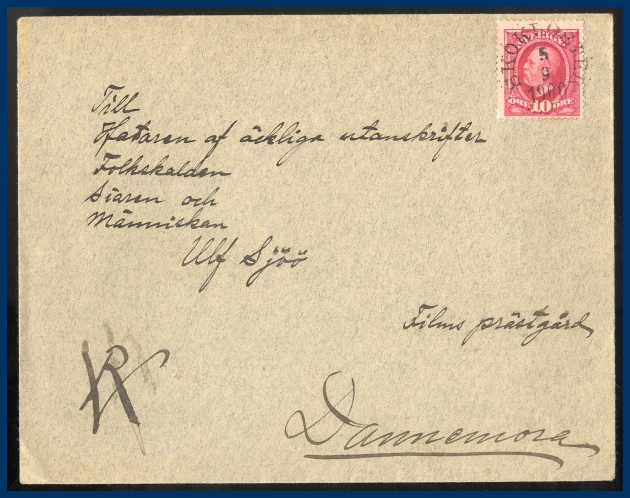 SKOKLOSTER
5
9
1900
SVERIGE
ÖRE 10 ÖRE
Till
Hataren af äckliga utanskrifter
Folkskalden
Siaren och
Människan
Ulf Sjöö
Films prästgård
Dannemora